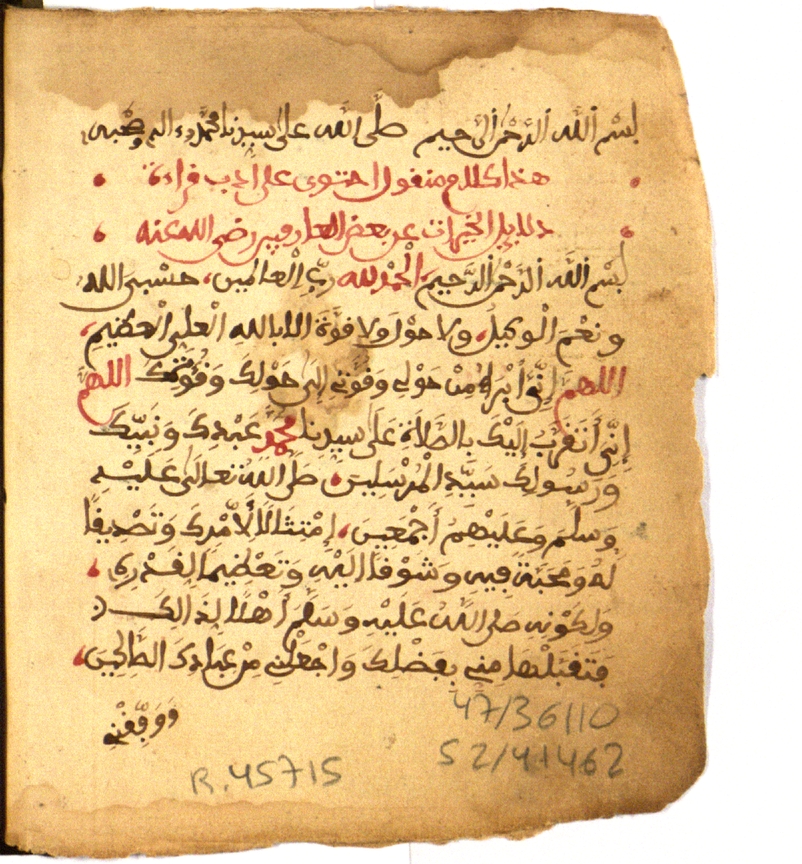 بسم الله الرحمن الرحيم صلى الله على سيدنا محمد وءاله وصحبه
هذا كلام منقول احتوى على ادب قراءة
دلايل الخيرات عن بعض العارفين رضي الله عنه
بسم الله الرحمن الرحيم الحمد لله رب العالمين، حسبي الله
ونعم الوكيل، ولا حول ولا قوة الا بالله العلي العظيم،
اللهم إني أبرأ من حولي وقوتي إلى حولك وقوتك اللهم
إني أتقرب إليك بالصلاة على سيدنا محمد عبدك ونبيك
ورسولك سيد المرسلين، صلى الله تعالى عليه
وسلم وعليهم أجمعين، إمتثالا لأمرك وتصديقا
له ومحبة فيه وشوقا إليه وتعظيما لقدره،
ولكونه صلى الله عليه وسلم أهلا لذالك
فتقبلها مني بفضلك واجعلني من عبادك الصالحين،
ووفقني
47/36110
R.45715 52/41462